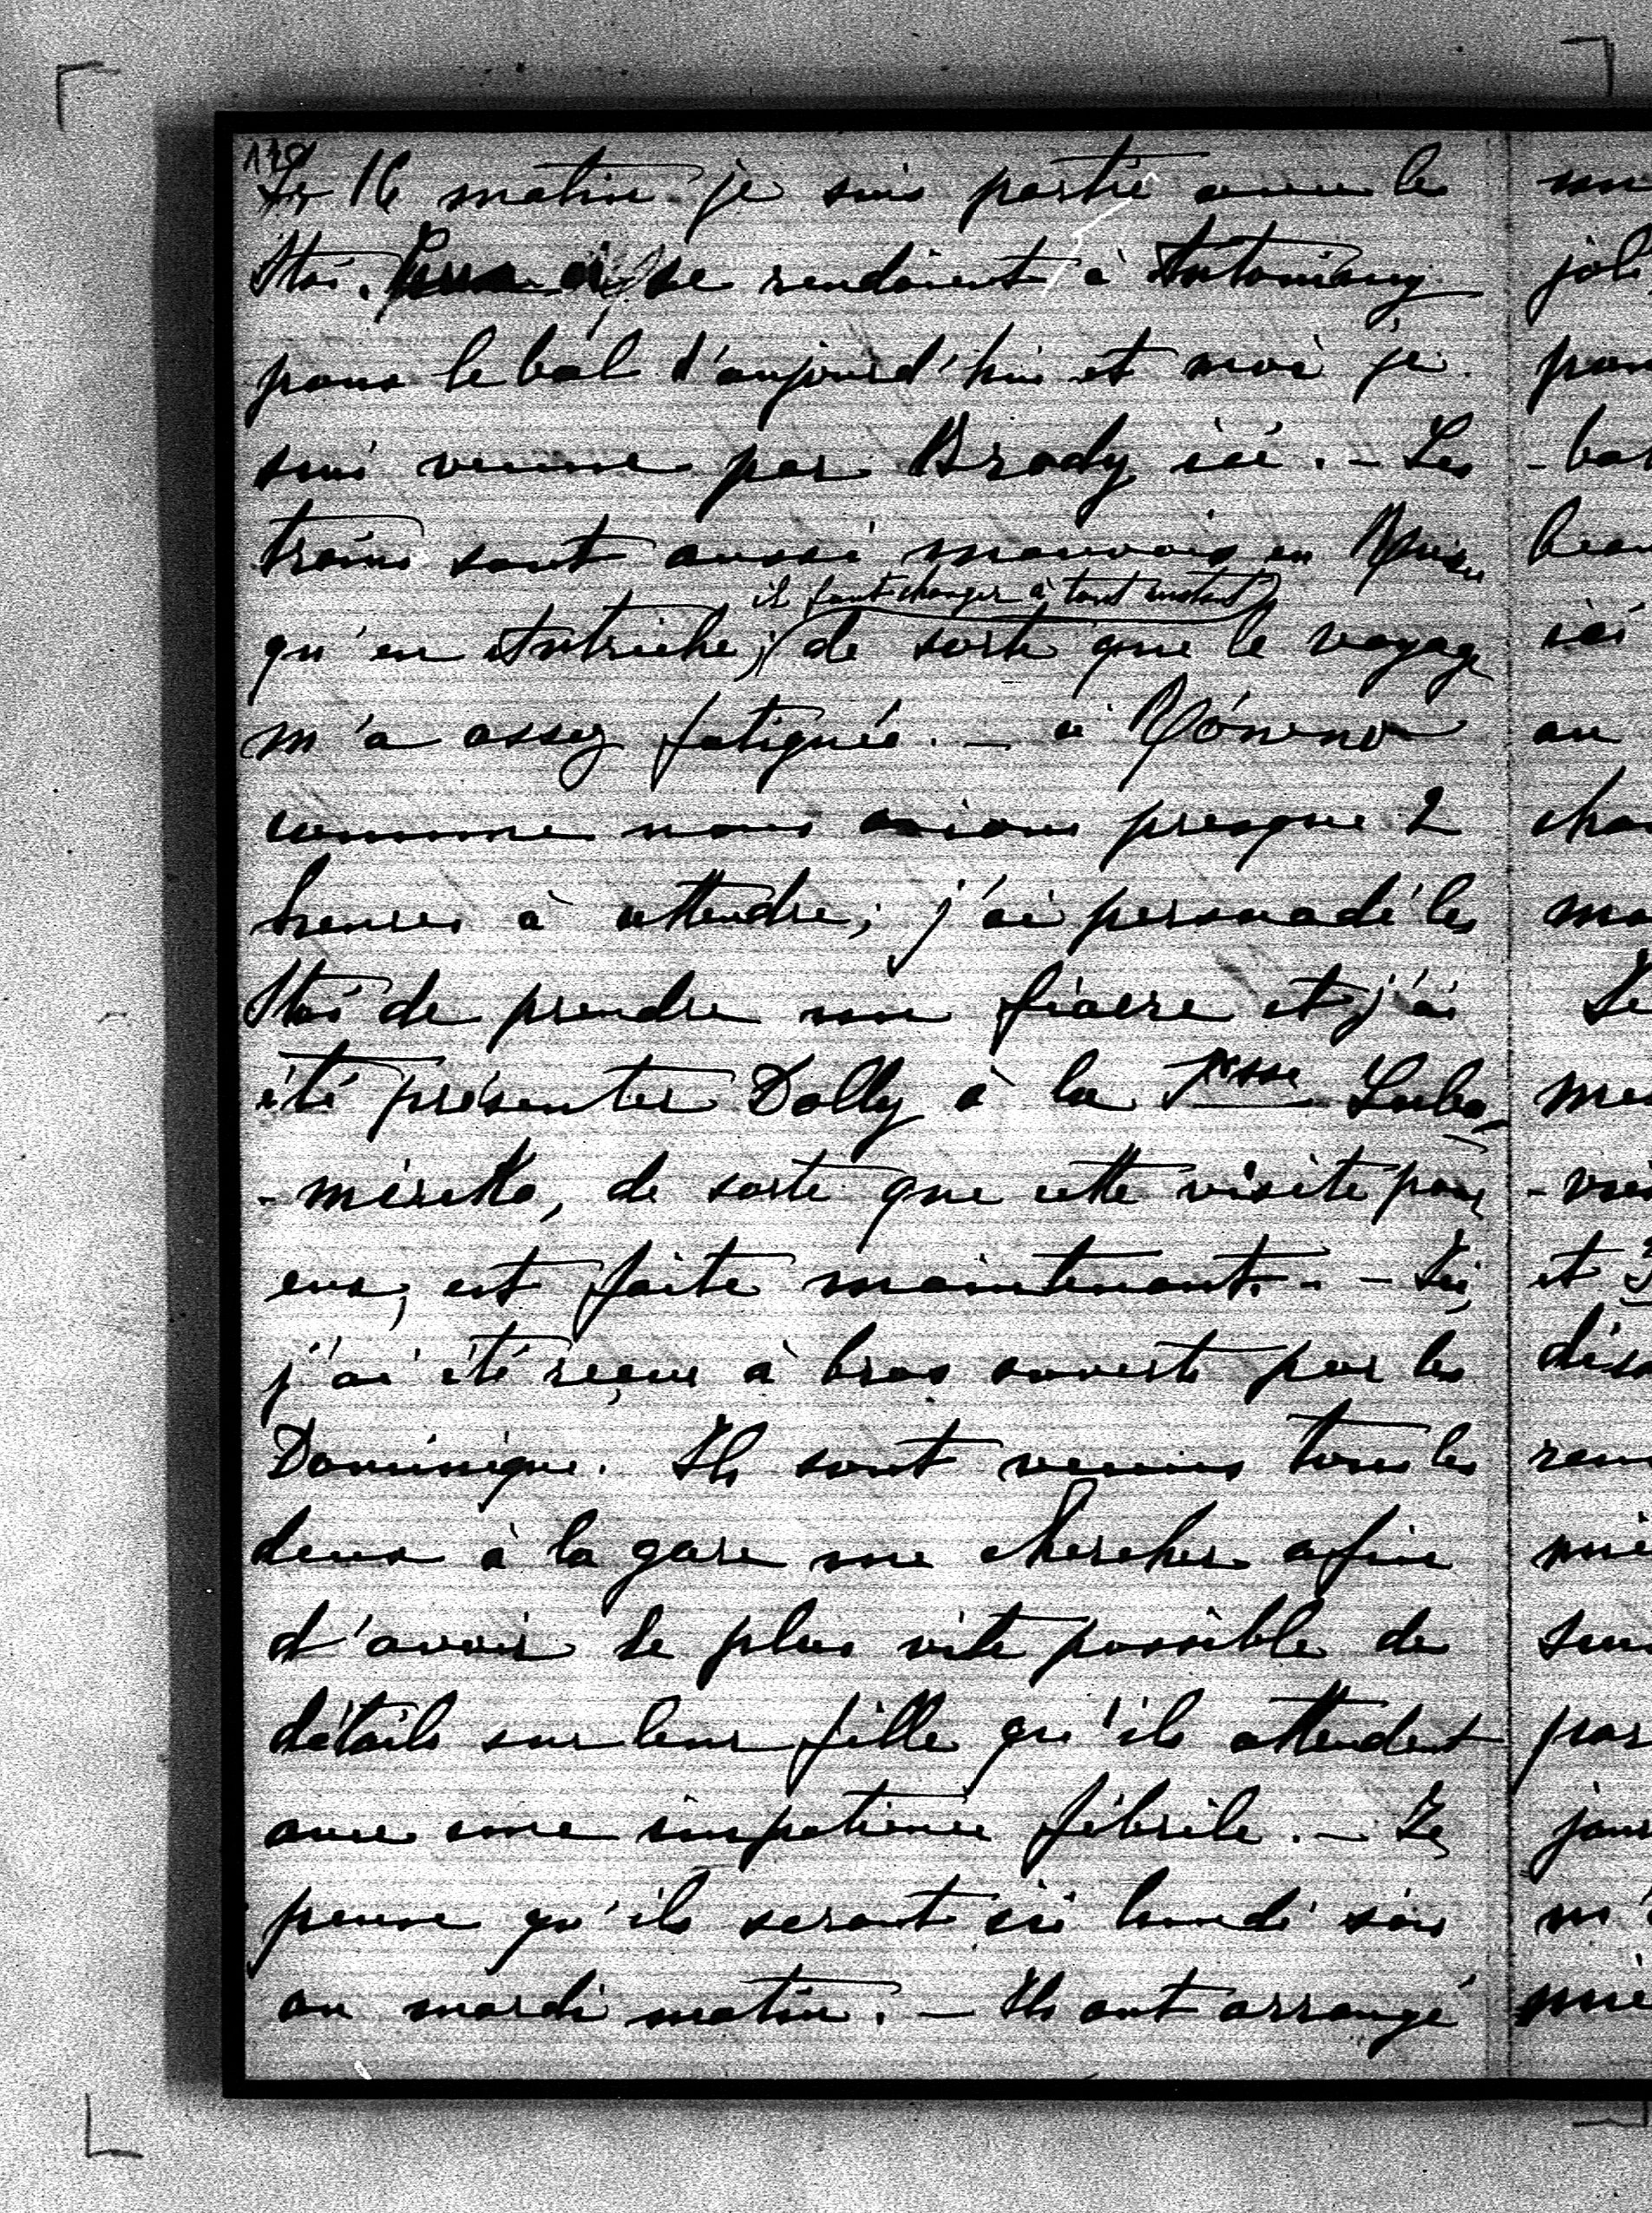 Le 16 matin je suis partie avec les
Stas. se rendaient à Antoniny
pour le bal d'aujourd'hui et moi je
suis venue par Brody ici. - Les
trains sont aussi mauvais en Russie
il faut changer à tout instant
qu'en Autriche; de sorte que le voyage
m'a assez fatiguée. - à Równo
comme nous avions presque 2
heures à attendre, j'ai persuadé les
Stas de prendre un fiacre et j'ai
été présenter Dolly à la Psse Lubo
-mirska, de sorte que cette visite pour
eux, est faite maintenant. - - Ici,
j'ai été reçue à bras ouverts par les
Dominique. Ils sont venus tous les
deux à la gare me chercher afin
d'avoir le plus vite possible des
détails sur leur fille qu'ils attendent
avec une impatience fébrile. - Je
pense qu'ils seront ici lundi soir
ou mardi matin. - Ils ont arrangé